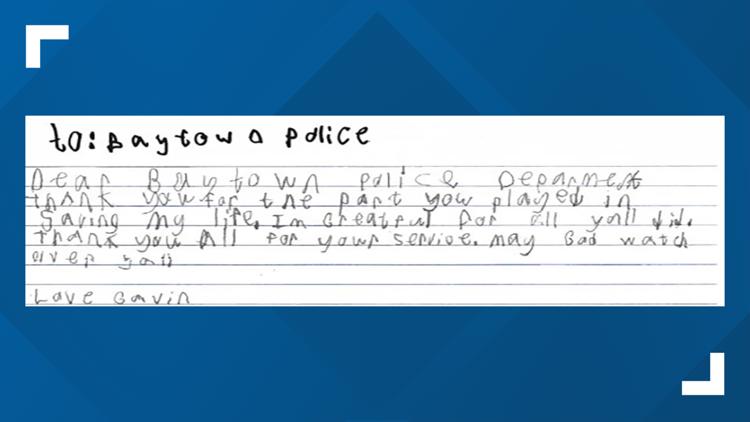 to: Baytown Police
Dear Baytown police Deparment
thank you for the part you played in
saving my life. Im Greatful for all yall did.
thank you All for your service. may God watch
over yall
Love Gavin